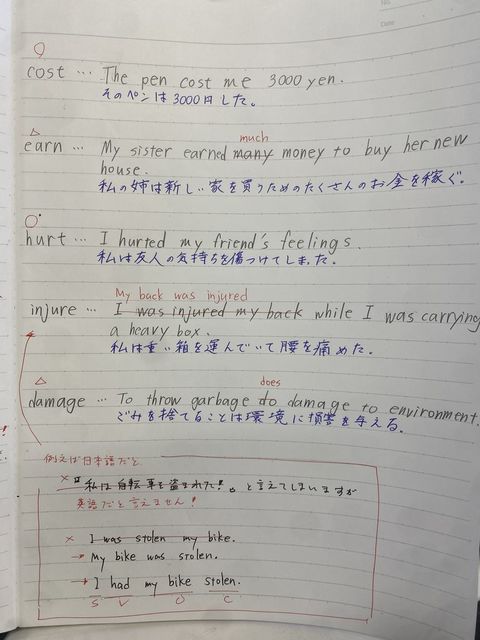 No.
Date
cost … The pen cost me 3000 yen.
そのペンは3000円した。
much
earn … My sister earned many money to buy her new
house.
私の姉は新しい家を買うためのたくさんのお金を稼ぐ。
hurt … I hurted my friend's feelings.
私は友人の気持ちを傷つけてしまた。
My back was injured
injure … I was injured my back while I was carrying
a heavy box.
私は重い箱を運んでいて腰を痛めた。
does
damage … To throw garbage do damage to environment.
ごみを捨てることは環境に損害を与える。
例えば日本語だと
×「私は自転車を盗まれた!」と言えてしまいますが
英語だと言えません!
× I was stolen my bike.
→ My bike was stolen.
→ I had my bike stolen.
S V O C